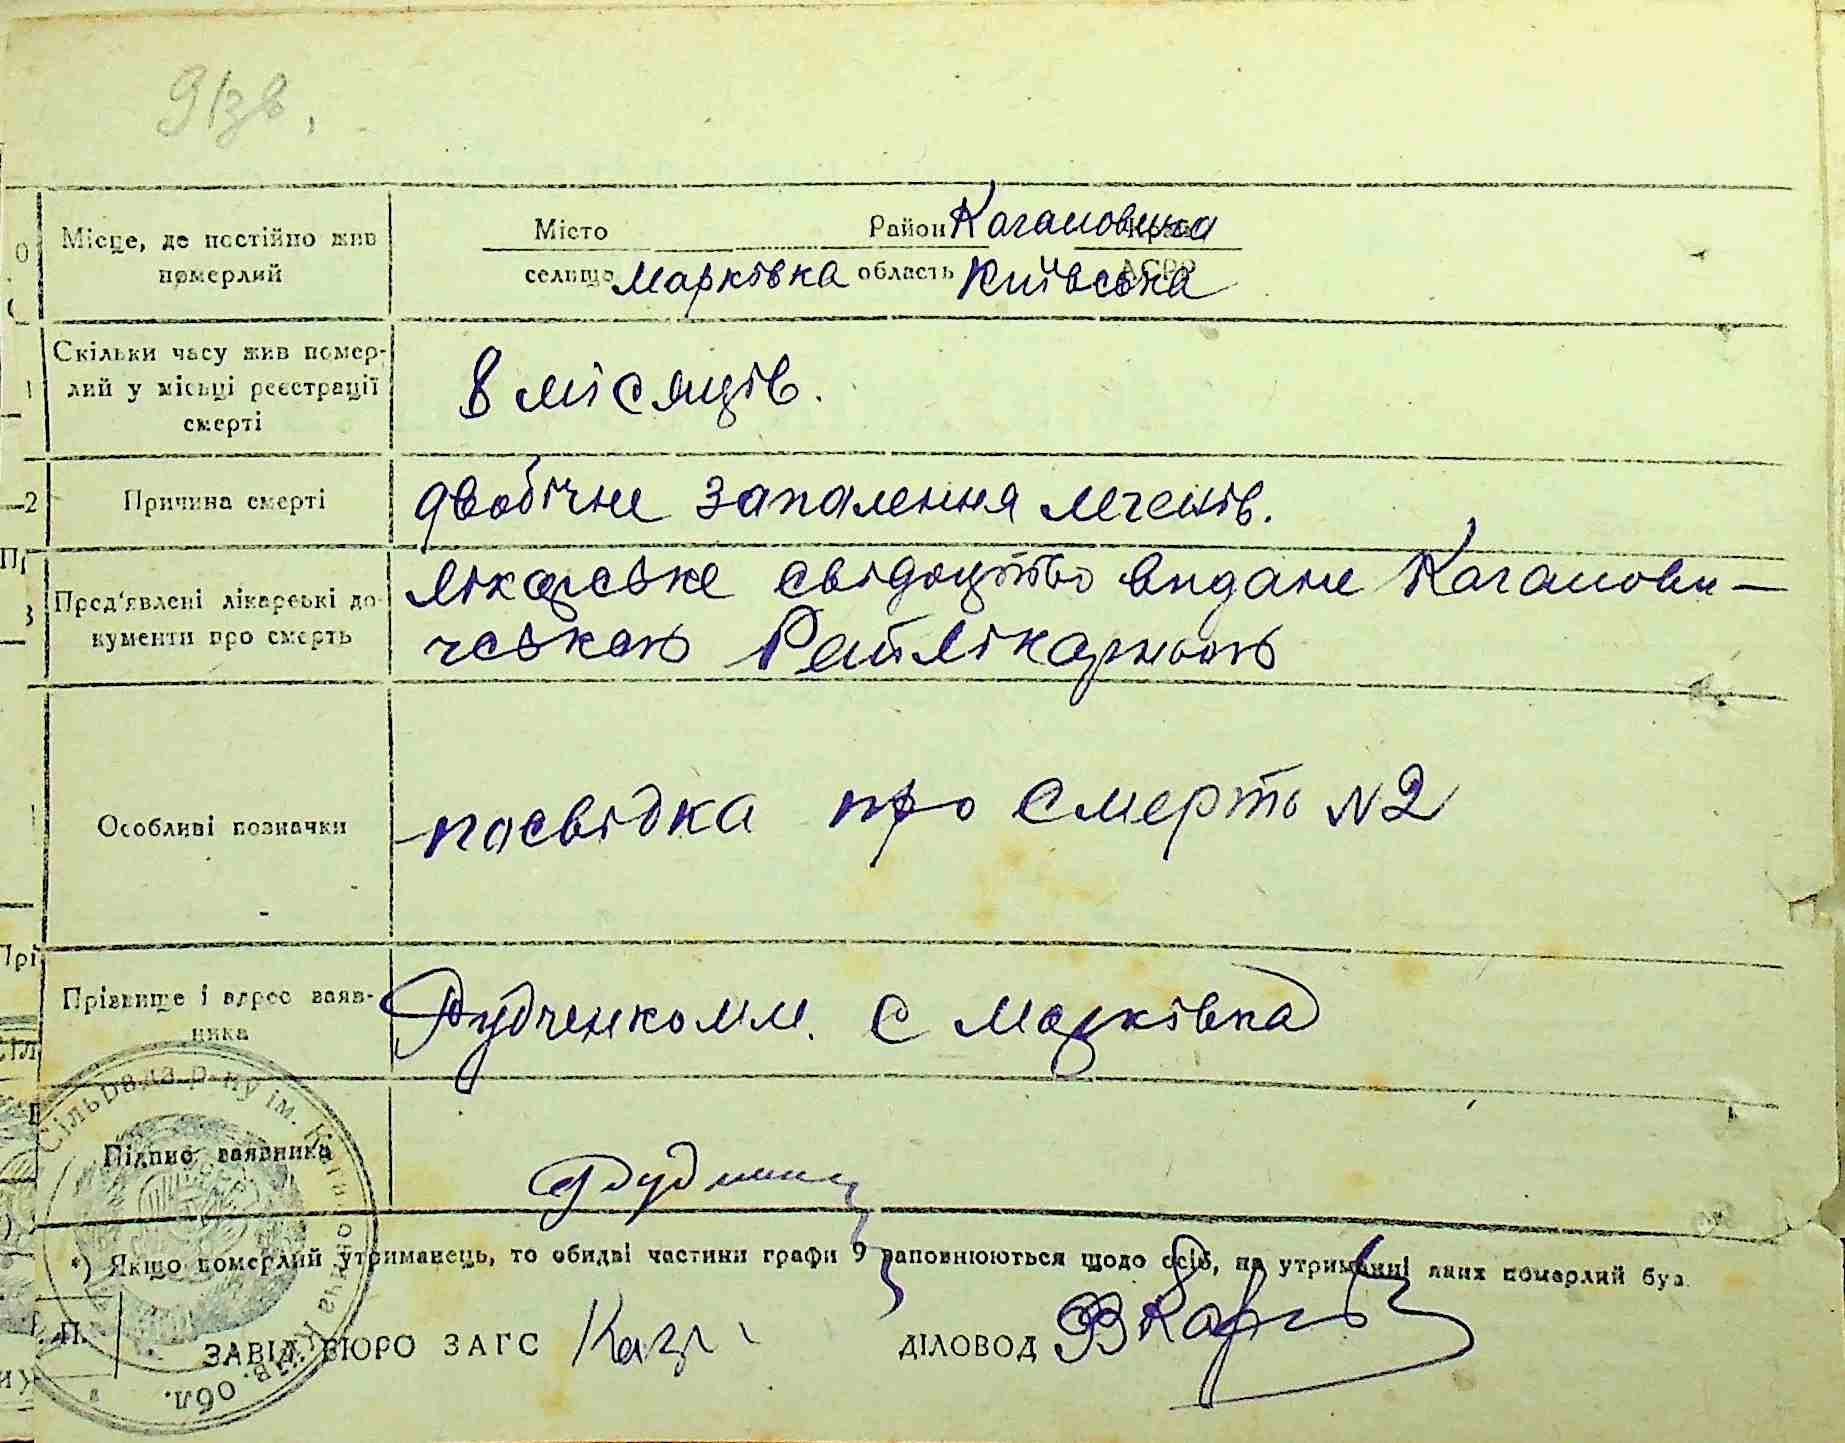 Місце, де постійно жив померлий
Місто Район Кагановича
селище Марківка область Київська АСРР
Скільки часу жив помер-
лий у місьці реєстрації
смерті
8 місяців.
Причина смерті
двобічне запалення легенів.
Пред'явлені лікарські до-
кументи про смерть
лікарське свідоцтво видане Каганови-
ческою Райлікарнею
Особливі позначки
посвідка про смерть N2
Прізвище і адрес заяв-
ника
Рудченко М.М. С Марківка
Підпис заявника
*) Якщо померлий утриманець, то обидві частини графи 9 заповнюються щодо осіб, на утриманні яких померлий був.
П.
ЗАВІД. БЮРО ЗАГС
ДІЛОВОД
Сільрада р-ну ім. Кагановича Київ. обл.